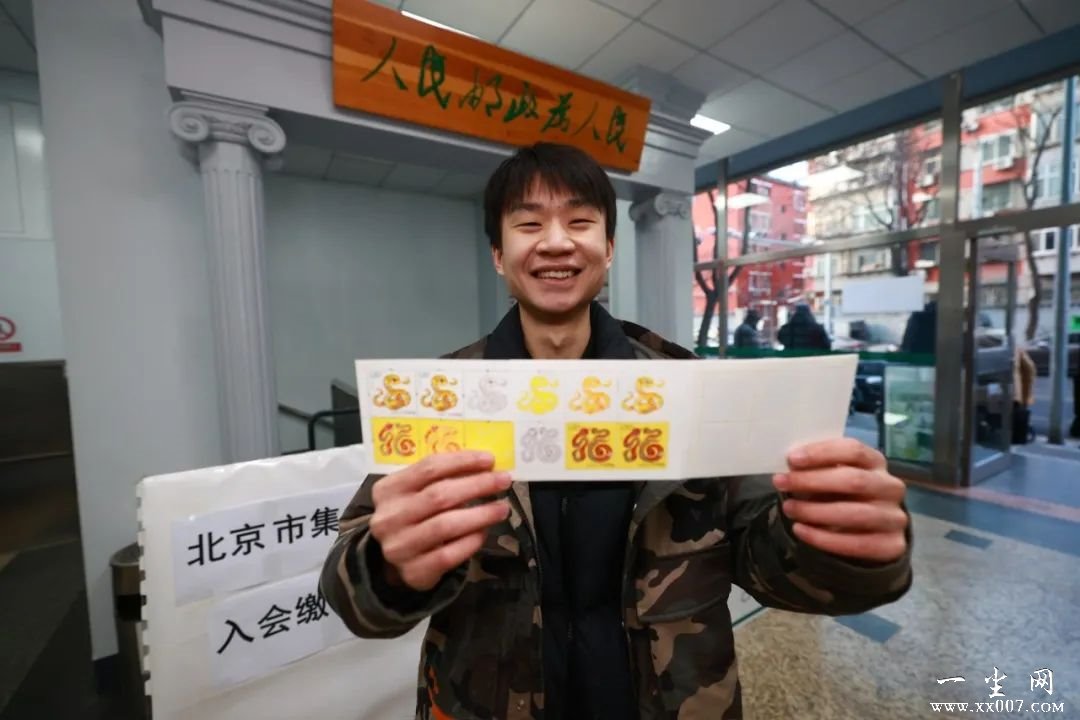 人民邮政为人民
北京市集
入会缴
一尘网
www.xx007.com